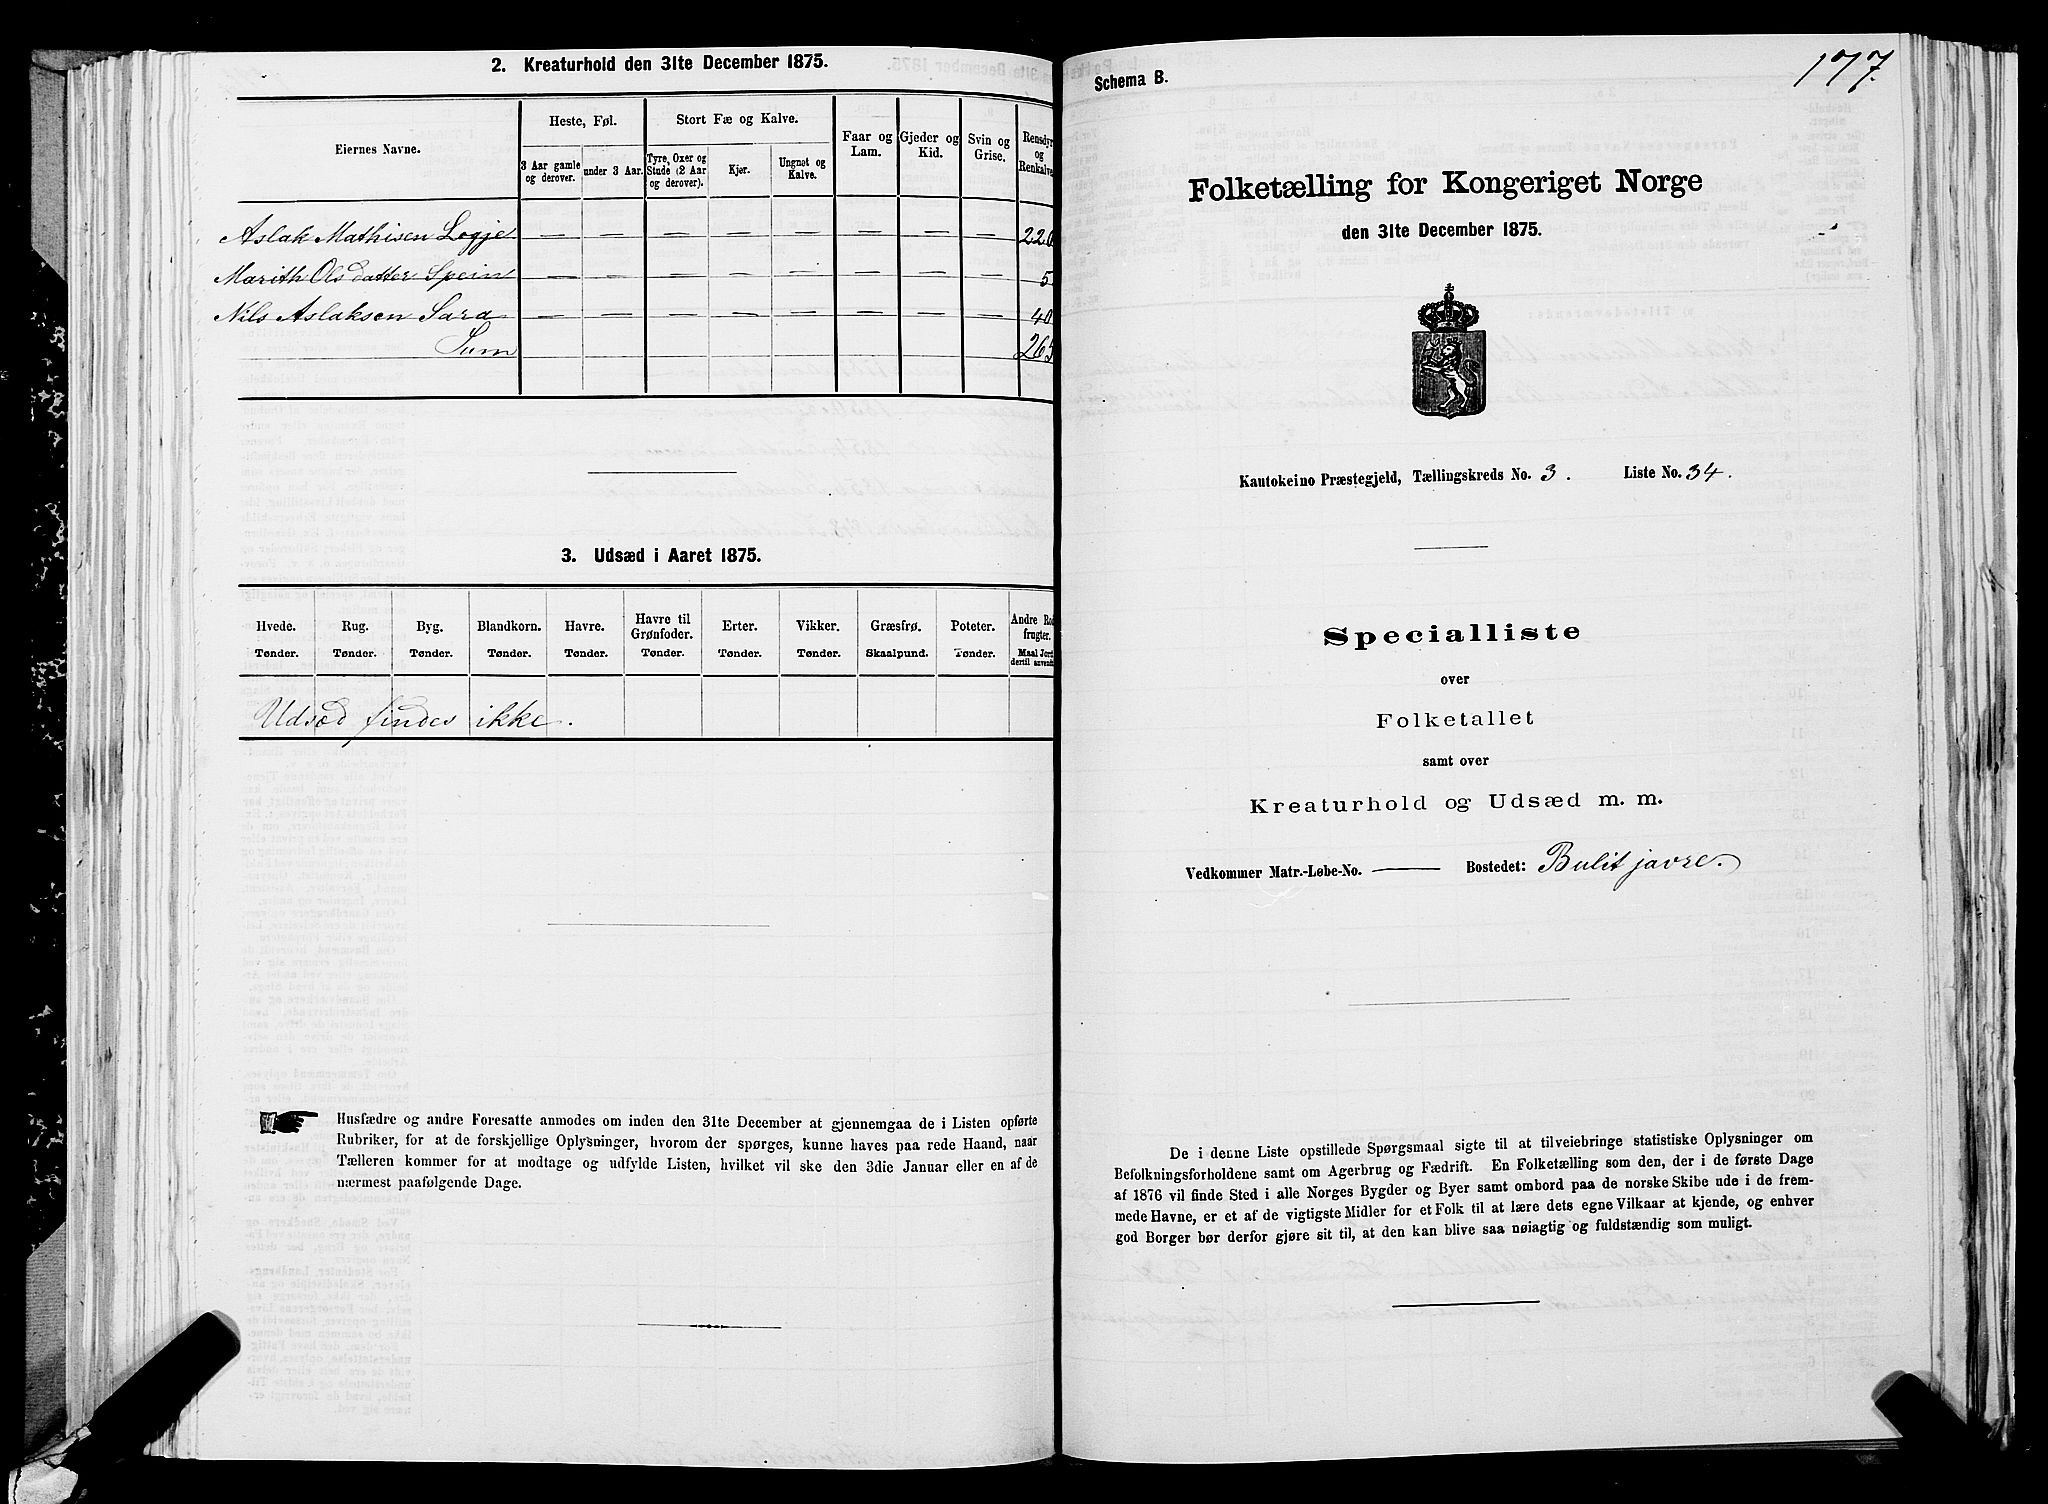 2. Kreaturhold den 31te December 1875.
Eiernes Navne.
Heste, Føl.
3 Aar gamle og derover.
under 3 Aar.
Stort Fæ og Kalve.
Tyre, Oxer og Stude (2 Aar og derover).
Kjør.
Ungnøt og Kalve.
Faar og Lam.
Gjeder og Kid.
Svin og Grise.
Rensdyr og Renkalve
Aslak Mathisen Logje — — — — — — — — 220
Marith Olsdatter Spein — — — — — — — — 5
Nils Aslaksen Sara — — — — — — — — 40
Sum 265
3. Udsæd i Aaret 1875.
Hvede. Tønder.
Rug. Tønder.
Byg. Tønder.
Blandkorn. Tønder.
Havre. Tønder.
Havre til Grønfoder. Tønder.
Erter. Tønder.
Vikker. Tønder.
Græsfrø. Skaalpund.
Poteter. Tønder.
Andre Ro frugter. Maal Jord dertil anvend
Udsæd findes ikke.
Husfædre og andre Foresatte anmodes om inden den 31te December at gjennemgaa de i Listen opførte
Rubriker, for at de forskjellige Oplysninger, hvorom der spørges, kunne haves paa rede Haand, naar
Tælleren kommer for at modtage og udfylde Listen, hvilket vil ske den 3die Januar eller en af de
nærmest paafølgende Dage.
177.
Schema B.
Folketælling for Kongeriget Norge
den 31te December 1875.
Kautokeino Præstegjeld, Tællingskreds No. 3. Liste No. 34.
Specialliste
over
Folketallet
samt over
Kreaturhold og Udsæd m. m.
Vedkommer Matr.-Løbe-No. —— Bostedet: Bulitjavre.
De i denne Liste opstillede Spørgsmaal sigte til at tilveiebringe statistiske Oplysninger om
Befolkningsforholdene samt om Agerbrug og Fædrift. En Folketælling som den, der i de første Dage
af 1876 vil finde Sted i alle Norges Bygder og Byer samt ombord paa de norske Skibe ude i de frem-
mede Havne, er et af de vigtigste Midler for et Folk til at lære dets egne Vilkaar at kjende, og enhver
god Borger bør derfor gjøre sit til, at den kan blive saa nøiagtig og fuldstændig som muligt.